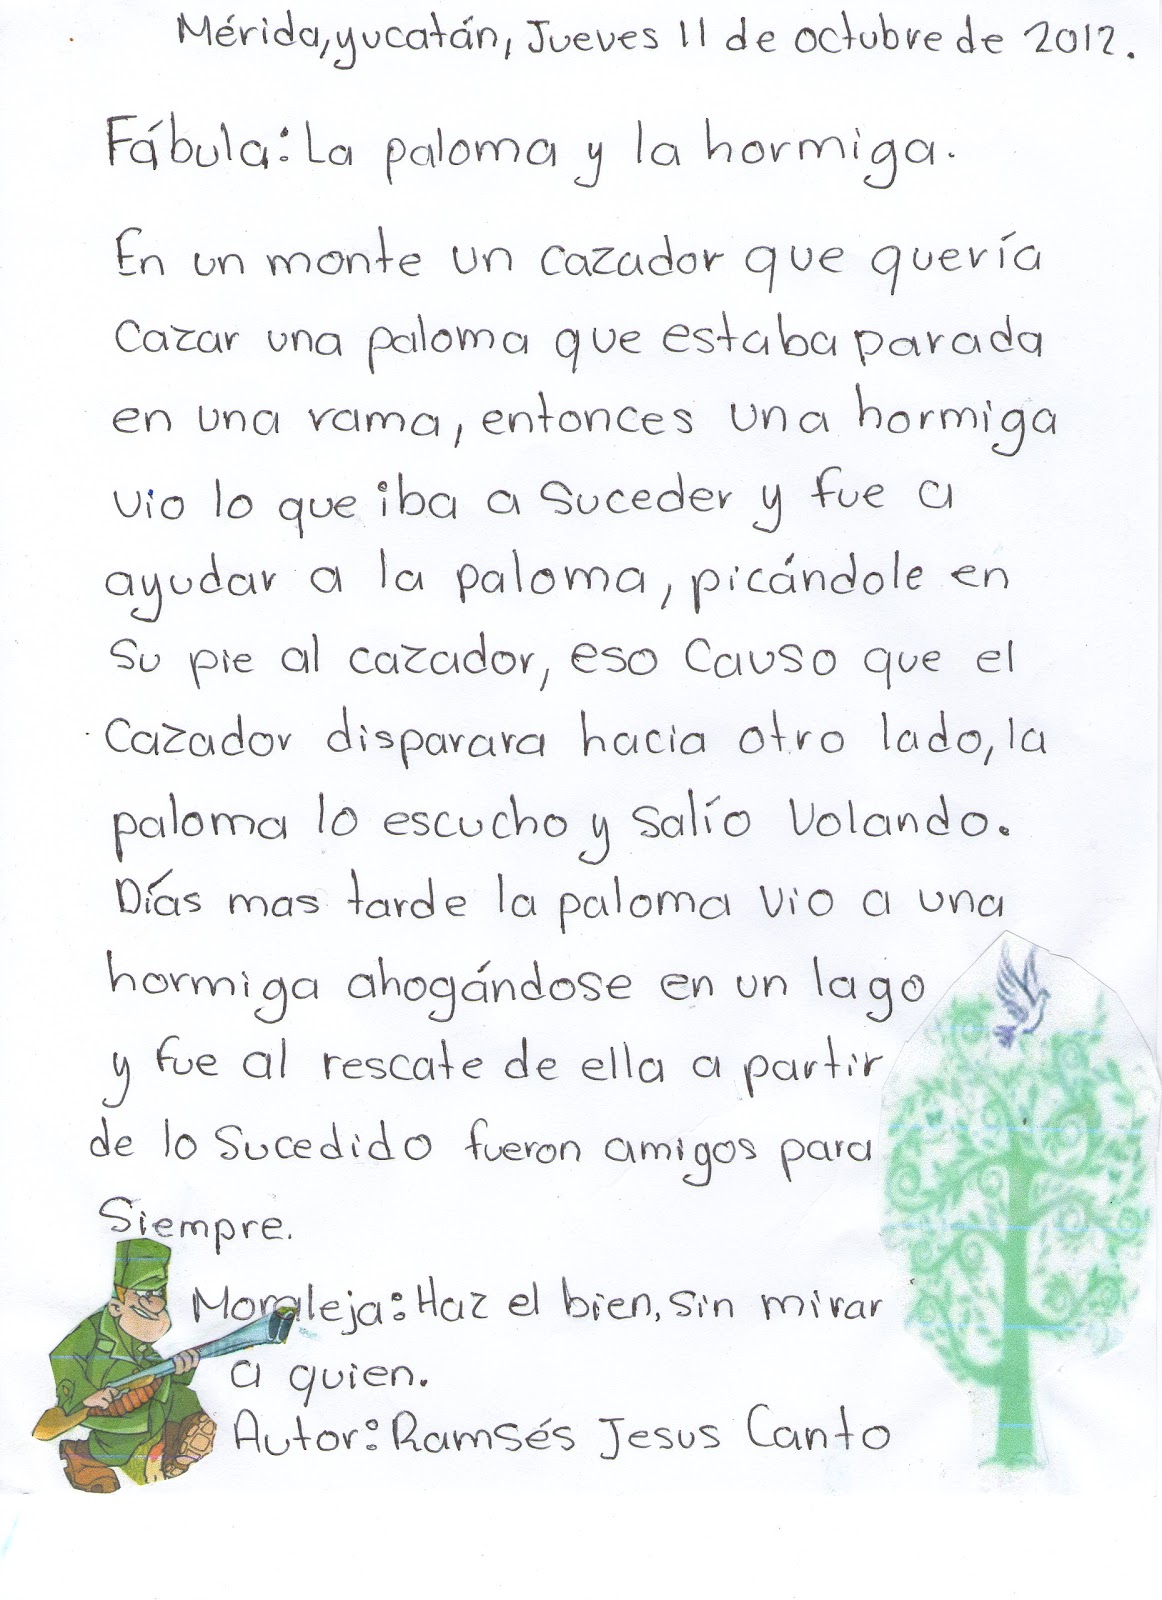 Mérida,yucatán, Jueves 11 de octubre de 2012.
Fábula: La paloma y la hormiga.
En un monte un cazador que quería
cazar una paloma que estaba parada
en una rama, entonces una hormiga
vio lo que iba a suceder y fue a
ayudar a la paloma, picándole en
su pie al cazador, eso causo que el
cazador disparara hacia otro lado, la
paloma lo escucho y salío volando.
Días mas tarde la paloma vio a una
hormiga ahogándose en un lago
y fue al rescate de ella a partir
de lo sucedido fueron amigos para
siempre.
Moraleja: Haz el bien, sin mirar
a quien.
Autor: Ramsés Jesus Canto